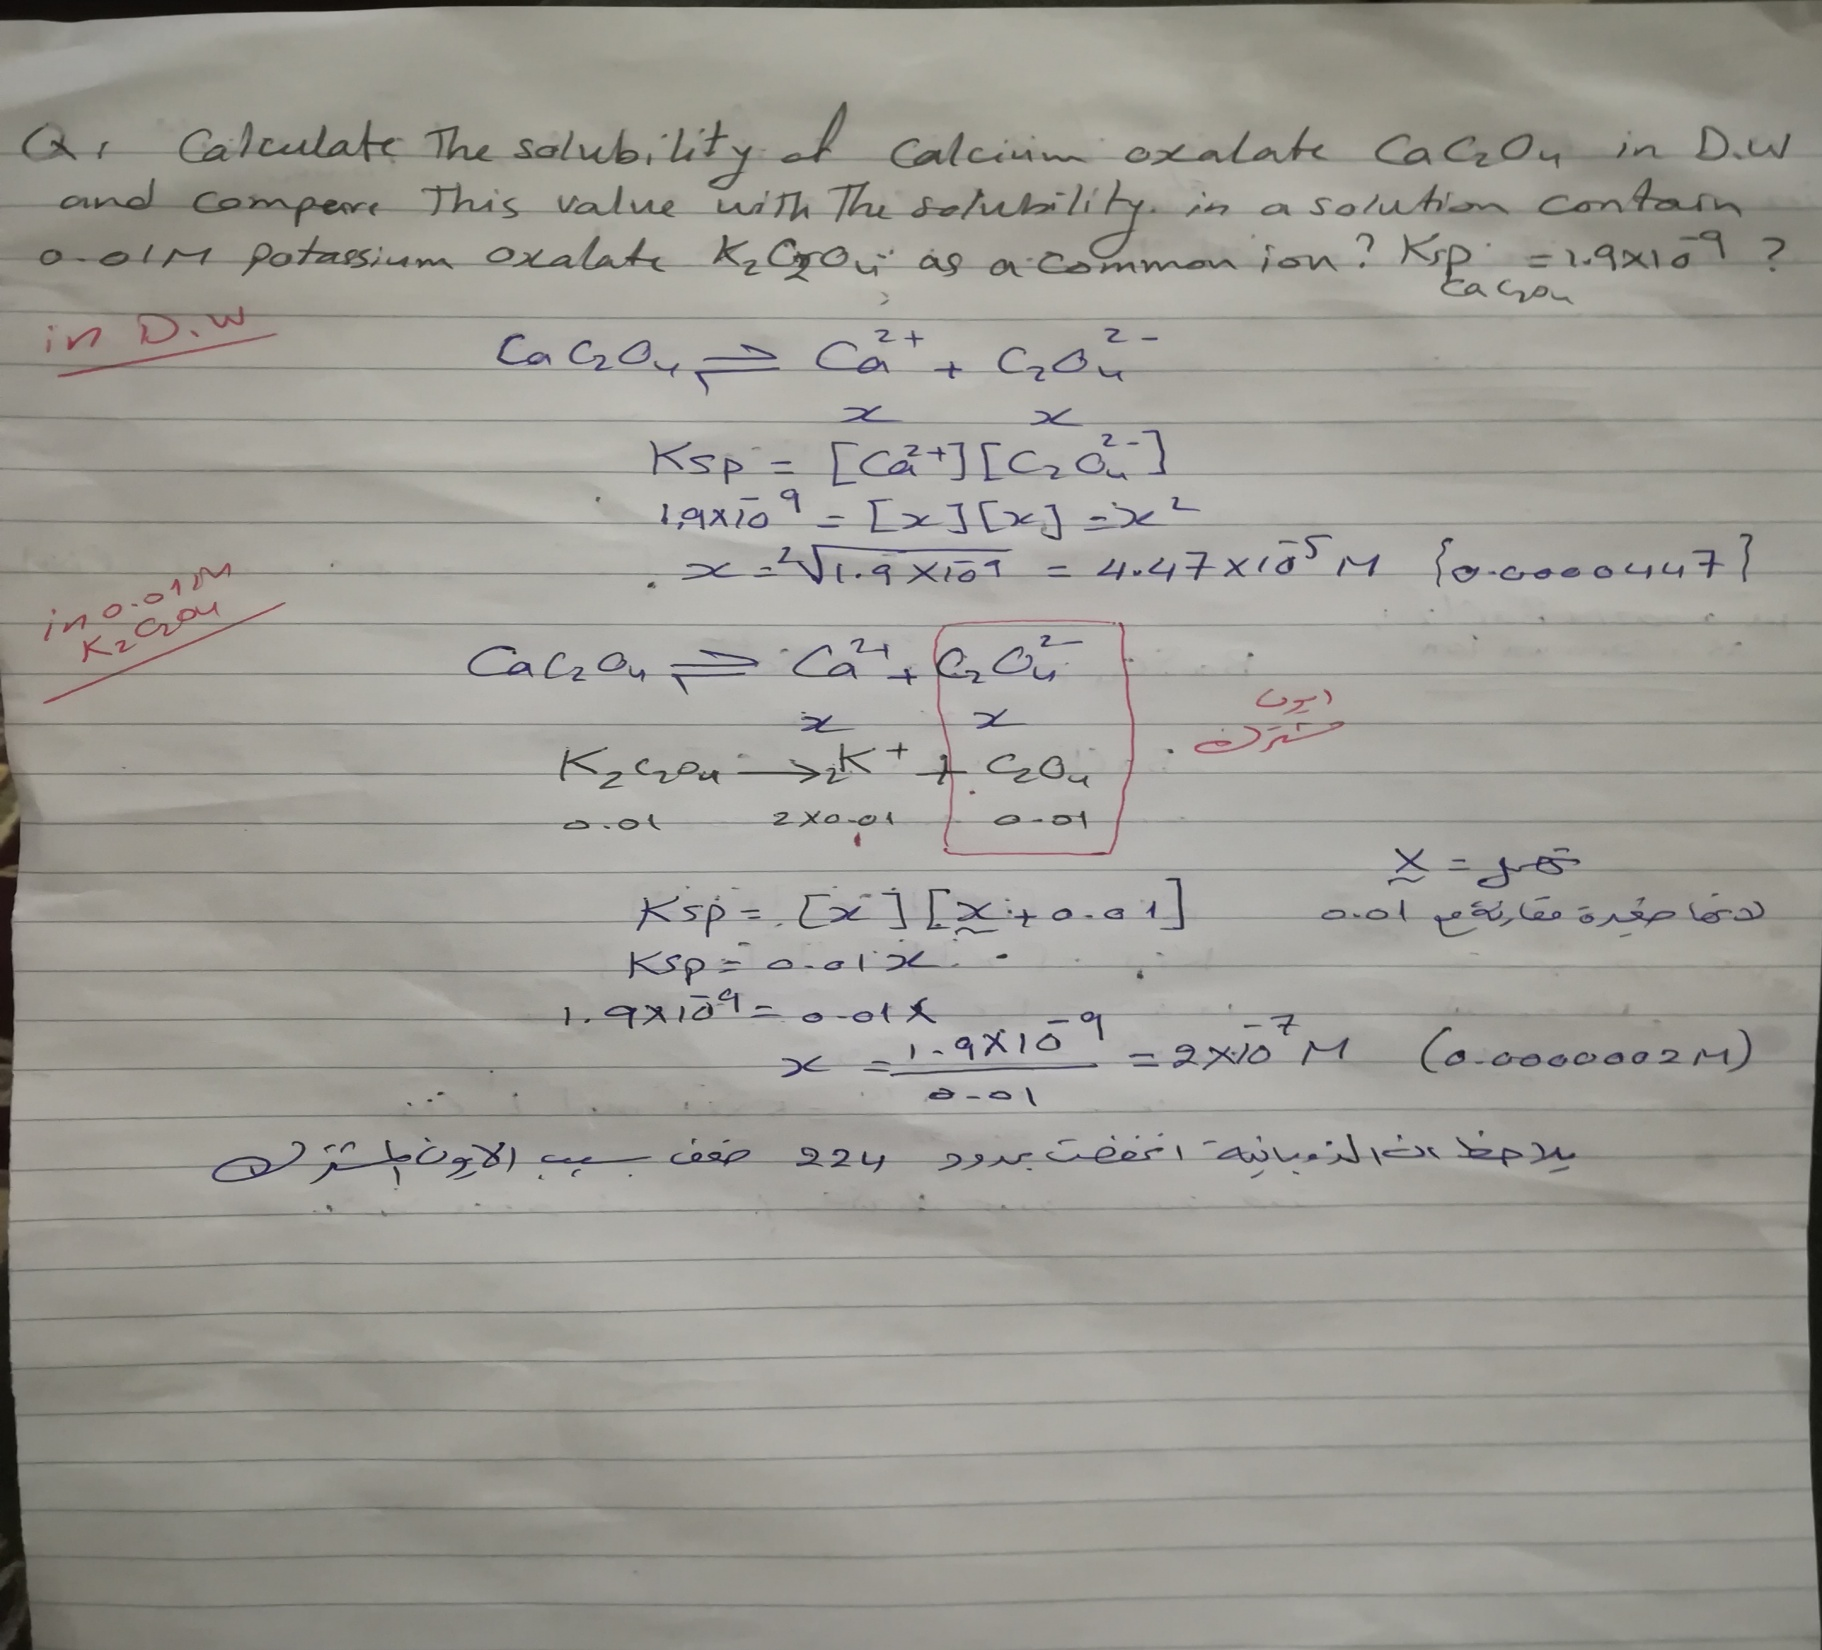 Q1 Calculate The solubility of Calcium oxalate CaC₂O₄ in D.W
and compare This value with The solubility in a solution contain
0.01M potassium oxalate K₂C₂O₄ as a common ion? Ksp = 1.9×10⁻⁹ ?
CaC₂O₄
in D.W
CaC₂O₄ ⇌ Ca²⁺ + C₂O₄²⁻
x x
Ksp = [Ca²⁺][C₂O₄²⁻]
1.9×10⁻⁹ = [x][x] = x²
x = ²√1.9×10⁻⁹ = 4.47×10⁻⁵ M {0.0000447}
in 0.01M
K₂C₂O₄
CaC₂O₄ ⇌ Ca²⁺ + C₂O₄²⁻
x x
ايون
مشترك
K₂C₂O₄ → 2K⁺ + C₂O₄
0.01 2×0.01 0.01
x = تهمل
Ksp = [x][x + 0.01]
لانها صغيرة مقارنة مع 0.01
Ksp = 0.01x
1.9×10⁻⁹ = 0.01x
x = 1.9×10⁻⁹ / 0.01 = 2×10⁻⁷ M (0.0000002M)
يلاحظ ان الذوبانية انخفضت بحدود 224 ضعف بسبب الايون المشترك